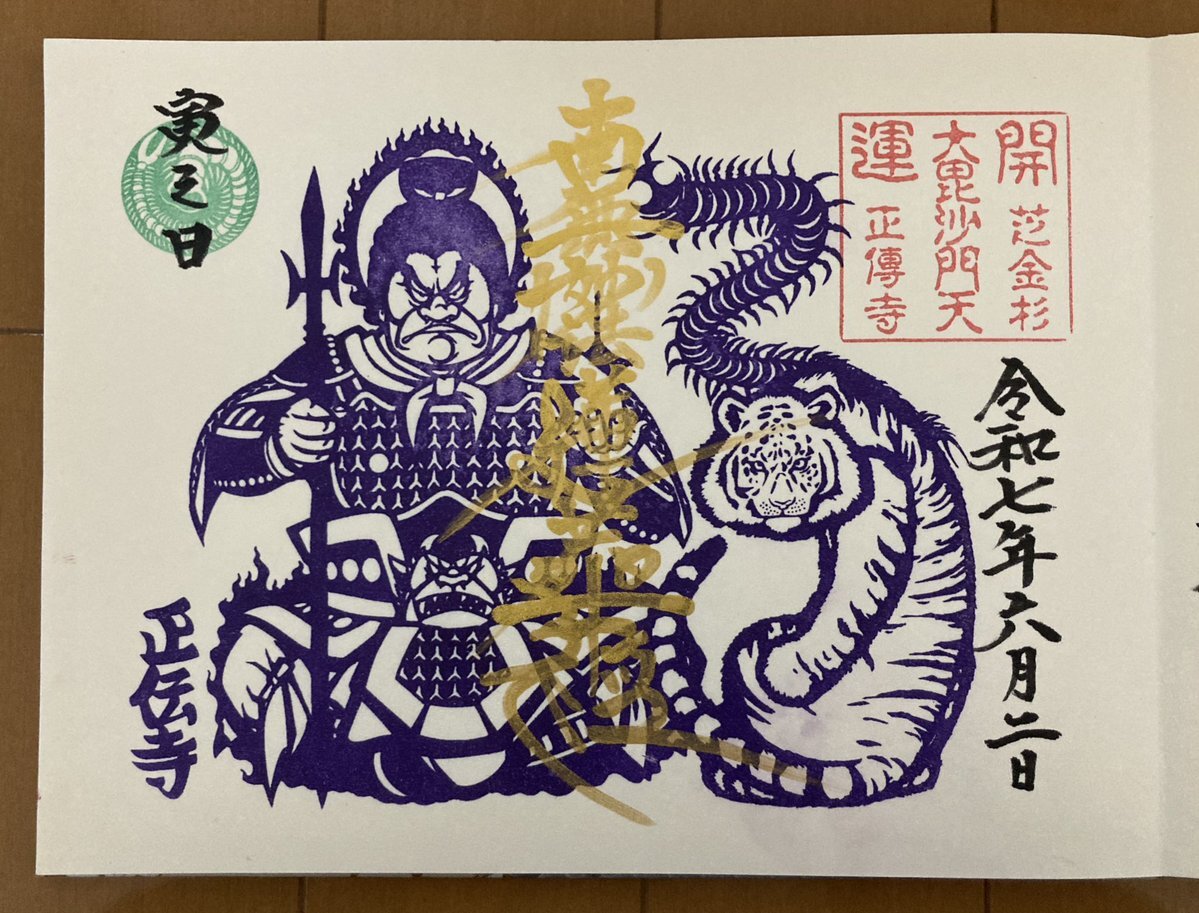 開 芝金杉
大毘沙門天
運 正傳寺
令和七年六月二日
南無妙法蓮華経
寅之日
正伝寺